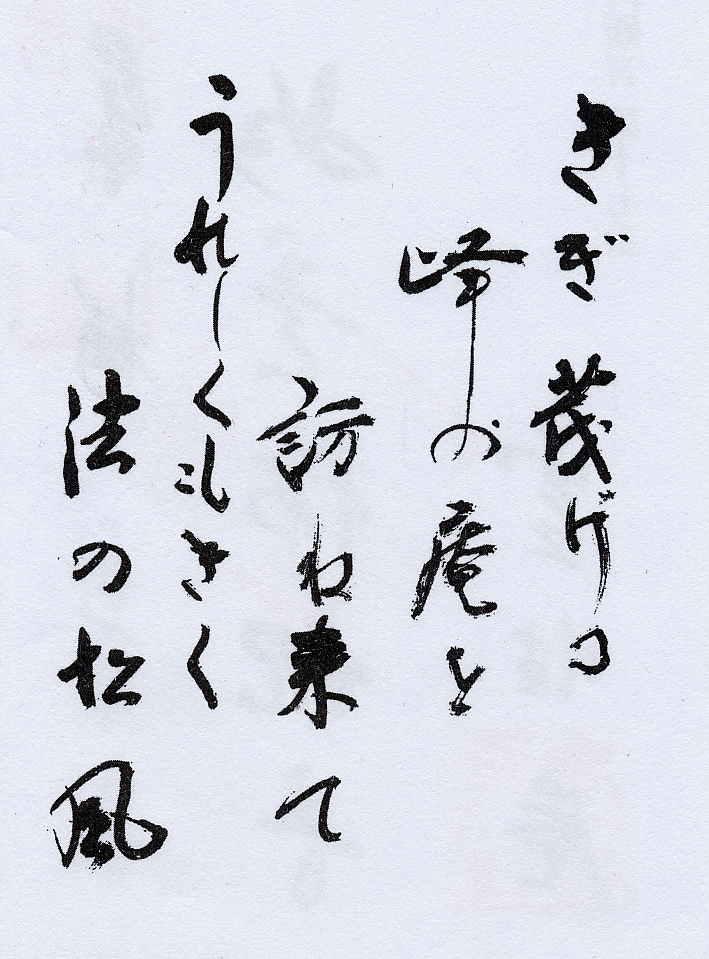 きぎ茂げ口
峰の庵を
訪ね来て
うれしくもきく
法の松風